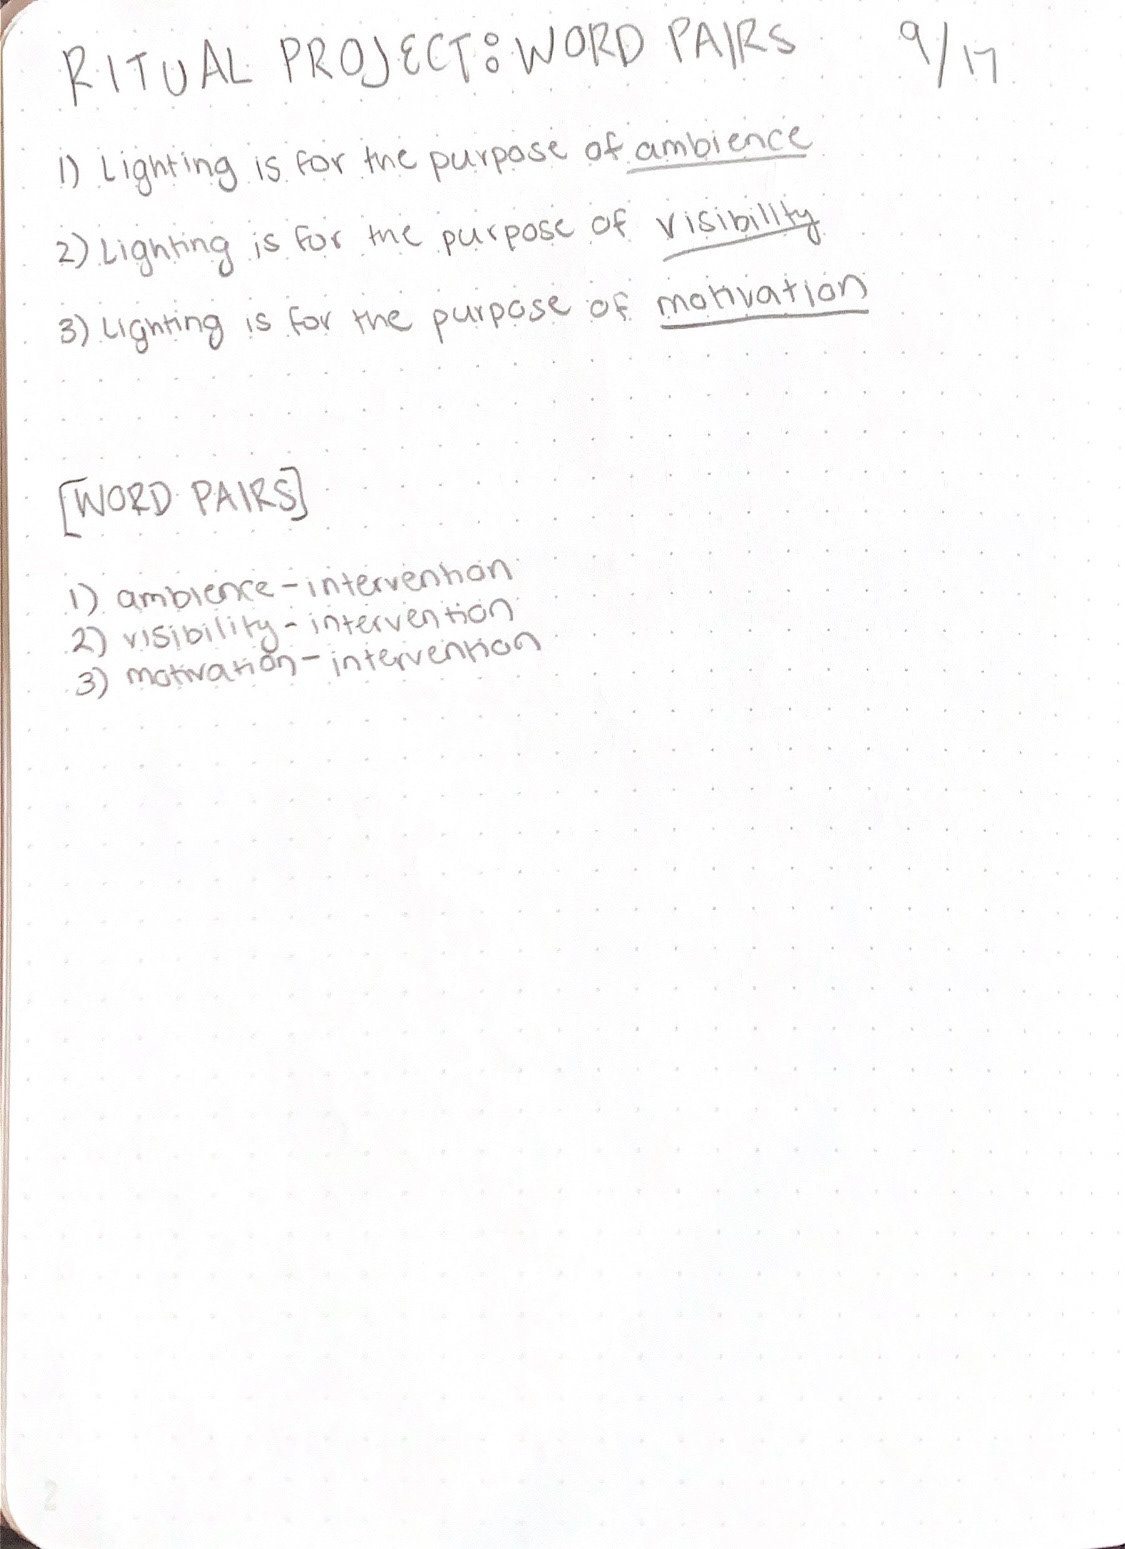 RITUAL PROJECT: WORD PAIRS 9/17
1) Lighting is for the purpose of ambience
2) Lighting is for the purpose of visibility
3) Lighting is for the purpose of motivation
[WORD PAIRS]
1) ambience - intervention
2) visibility - intervention
3) motivation - intervention
2